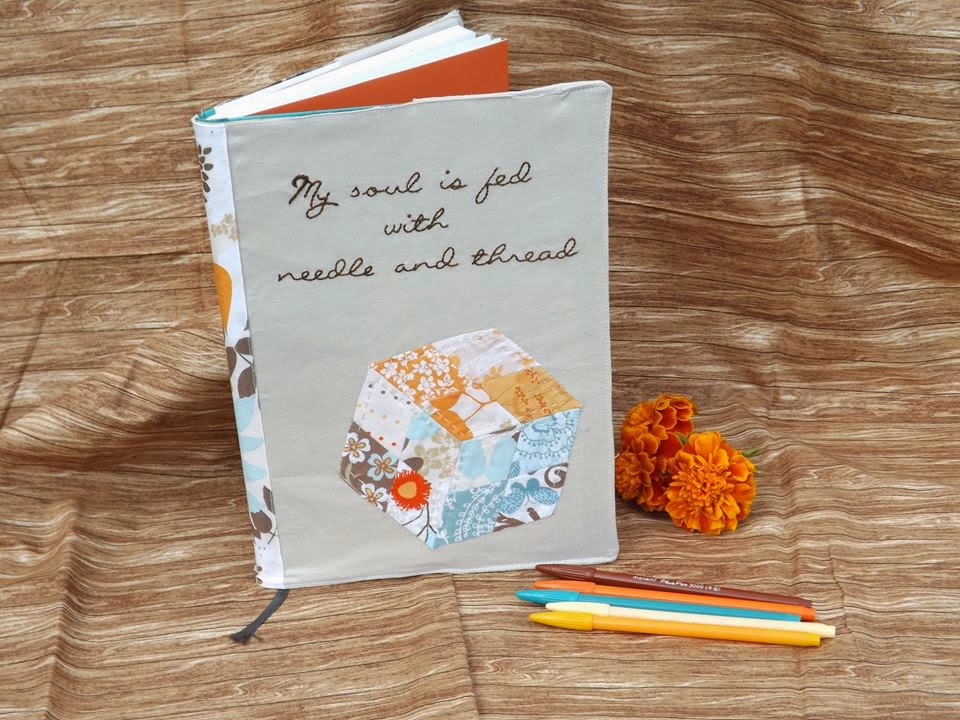 My soul is fed
with
needle and thread
monami Plus Pen 3000